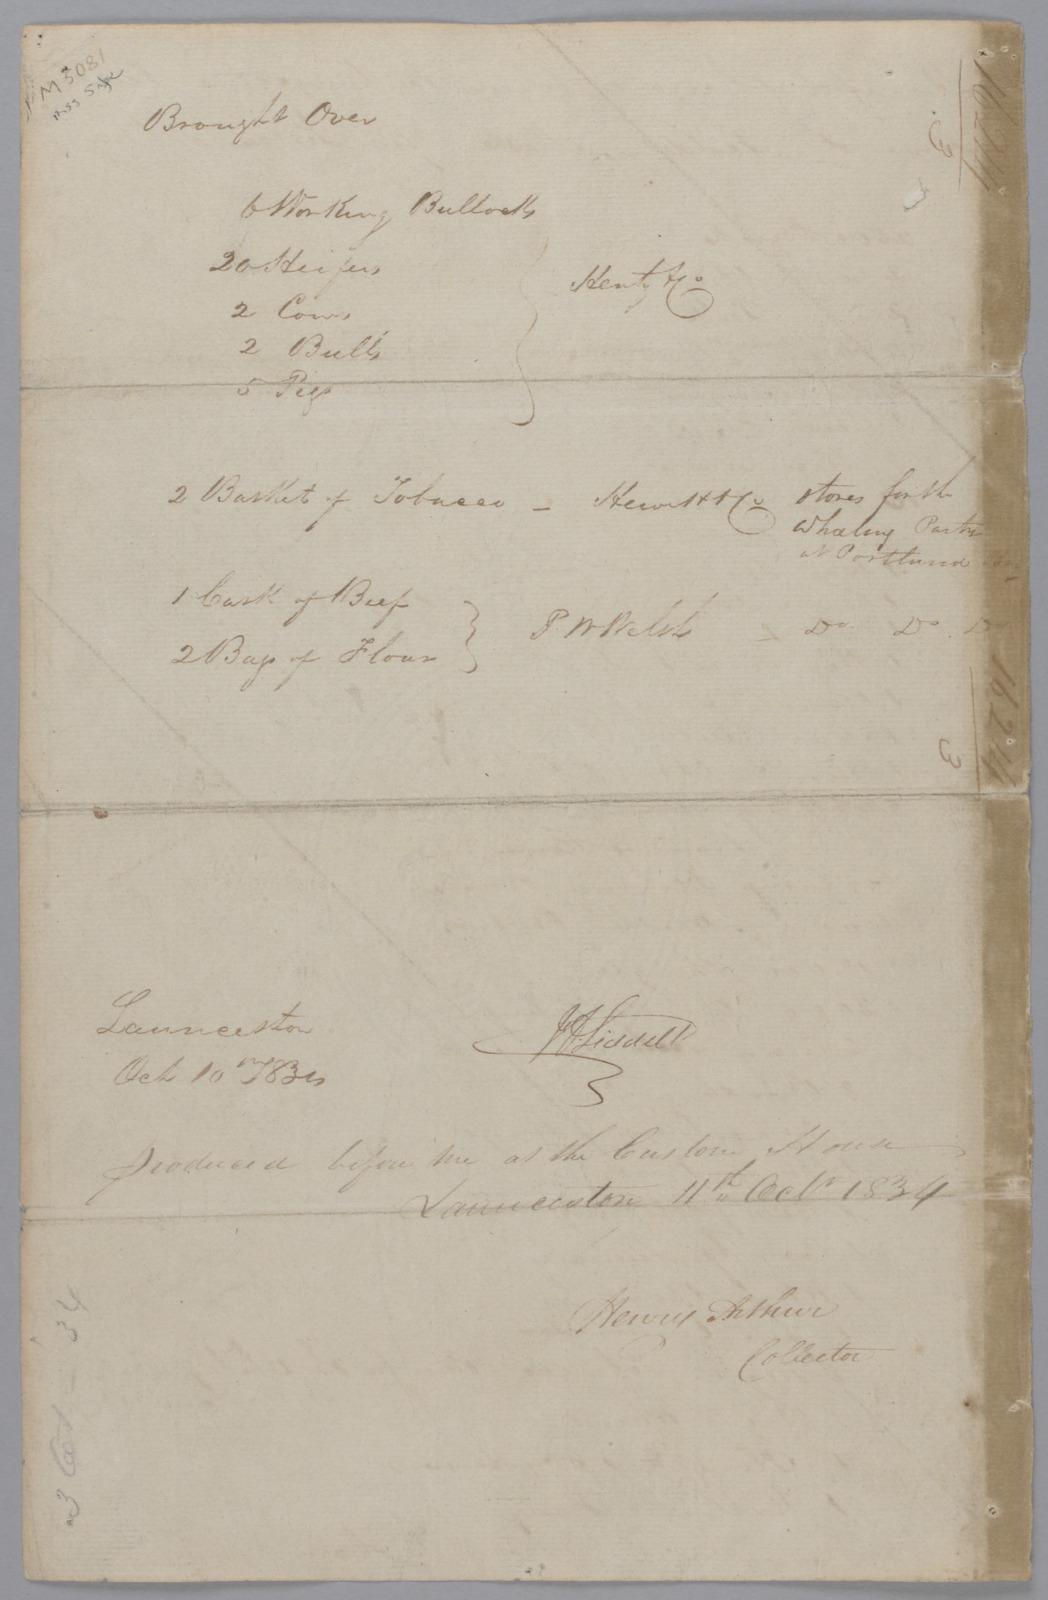 M 5081
mss Safe
Brought Over
6 Working Bullocks
20 Heifers
2 Cows
2 Bulls
5 Pigs
Henty & Co
2 Basket of Tobacco - Hewitt & Co stores for the
Whaling Party
at Portland
1 Cask of Beef
2 Bags of Flour
P. W Welsh - Do Do D
1624
3
1624
3
Launceston
Oct 10th 1834
J Liddell
produced before me at the Custom House
Launceston 11th Octr 1834
Henry Arthur
Collector
3 Oct - 34